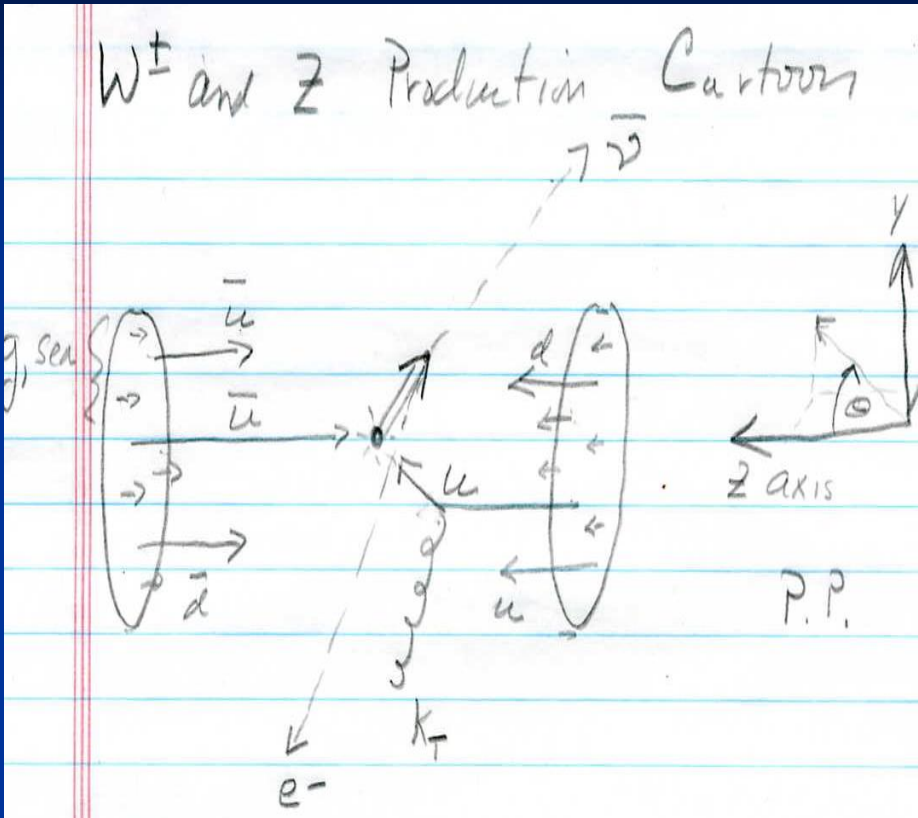 W± and Z Production Cartoon
ν̄
y
ū
g, sea {
d
ū
θ
u
Z axis
d̄
u
P.P.
k_T
e-